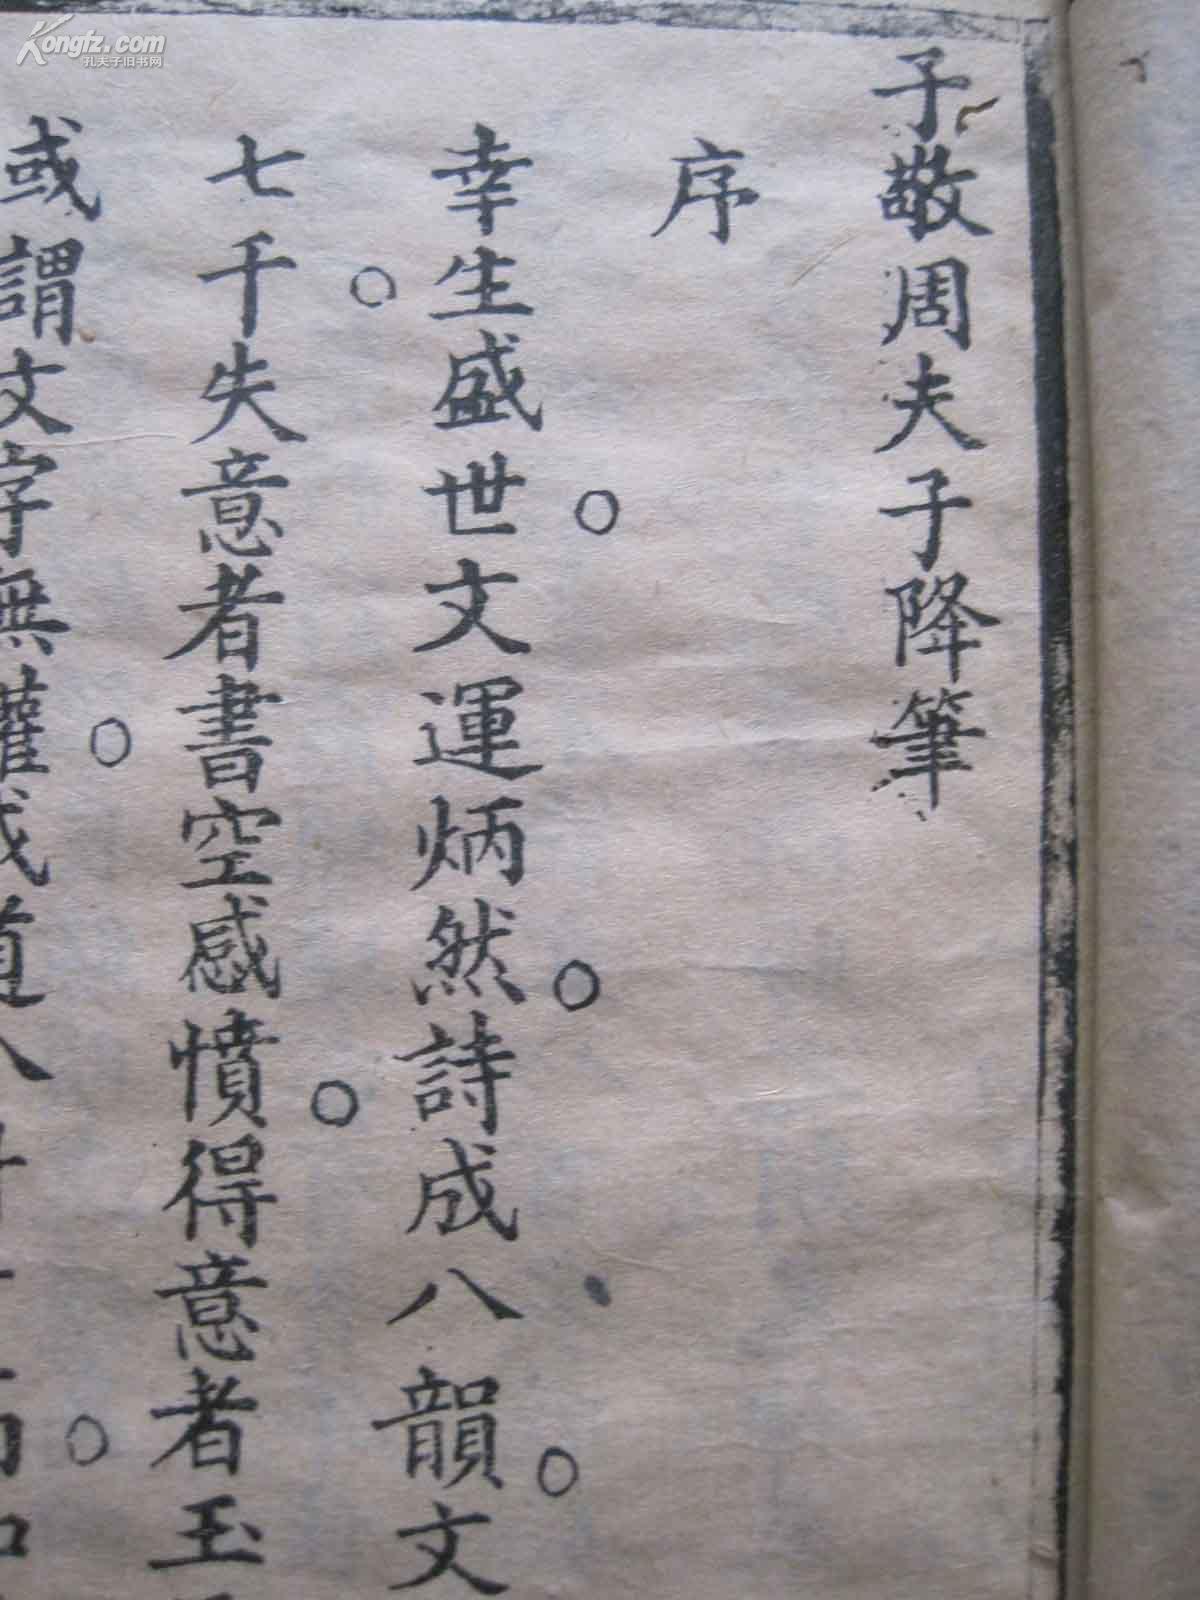 子敬周夫子降筆
序
幸生盛世。文運炳然。詩成八韻。文
七千。失意者書空感憤。得意者玉
或謂文字無權。我道人
Kongfz.com
孔夫子旧书网